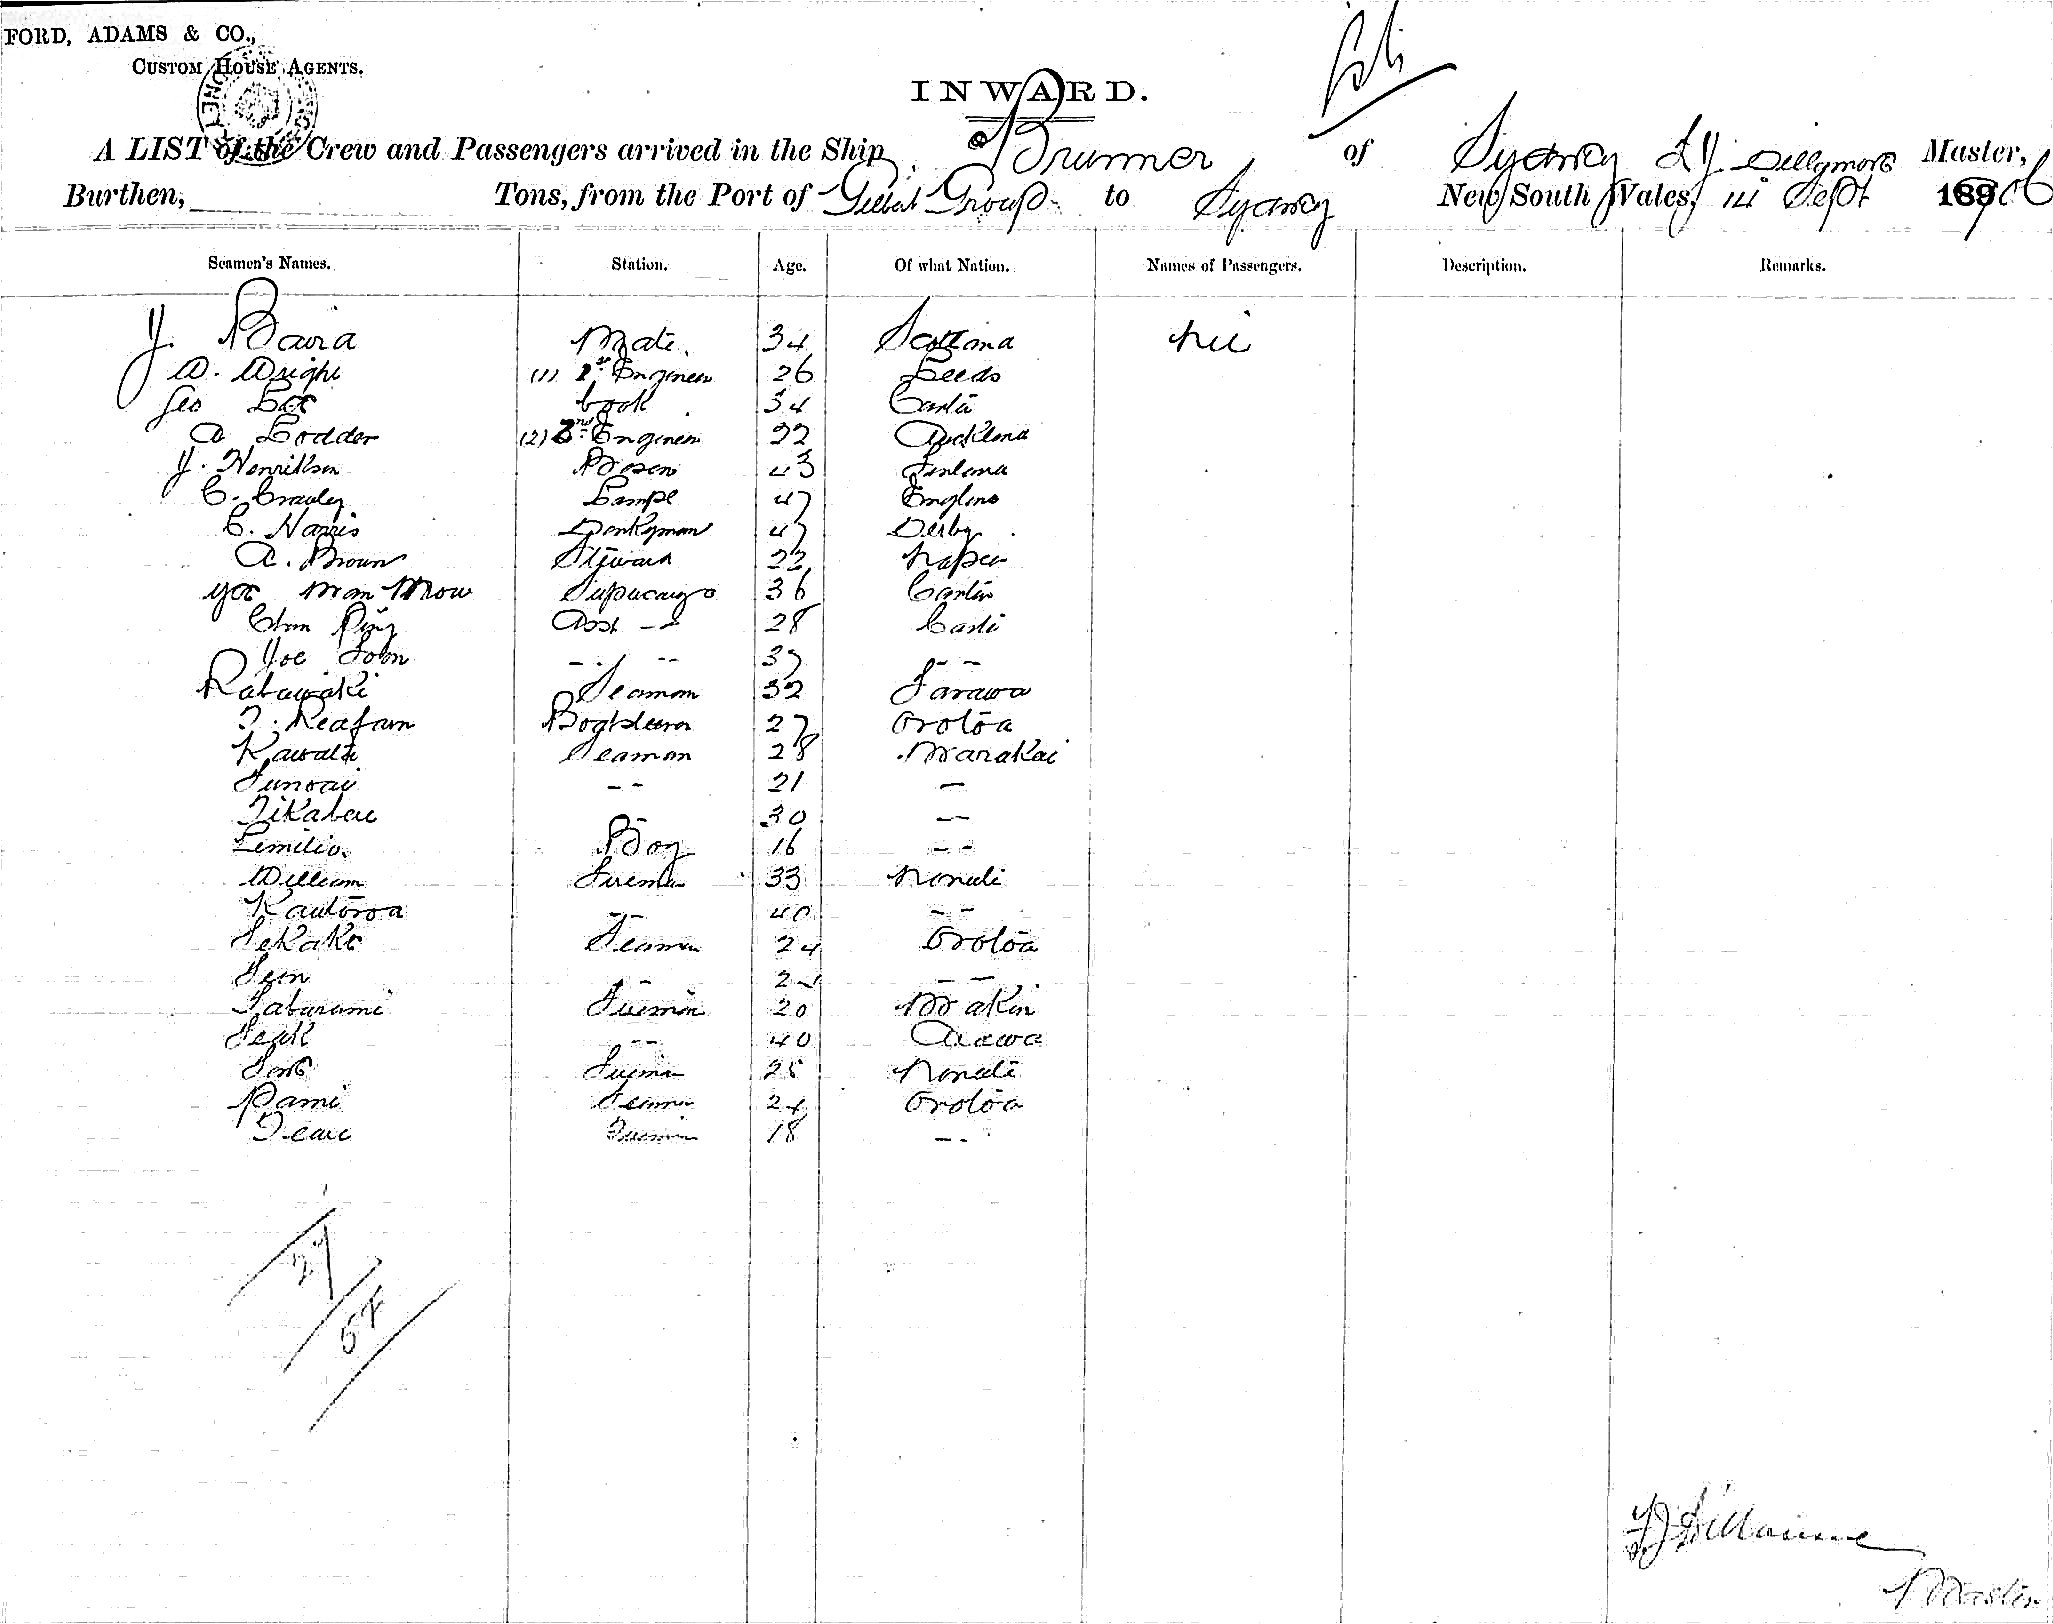 FORD, ADAMS & CO.,
CUSTOM HOUSE AGENTS.
INWARD.
A LIST of the Crew and Passengers arrived in the Ship Brunner of Sydney Master,
Burthen, Tons, from the Port of Gilbert Group to Sydney New South Wales, 14 Sept 189
Seamen's Names. Station. Age. Of what Nation. Names of Passengers. Description. Remarks.
J. Baird Mate. 34 Scotland Nil
W. Wright (1) 1st Engineer 26 Leeds
Geo Lee Cook 34
A Lodder (2) 2nd Engineer 22 Auckland
J. Henriksen Bosen 43 Finland
C. Crawley Lamps 47 England
C. Harris Donkyman 47 Derby
A. Brown Steward 22 Napier
Yee Man Mow Supucargo 36 Canton
Chm Ping Asst -- 28
Yoe -- -- 37 -- --
Rabawaki Seaman 32 Tarawa
T. Keafam 27 Orotoa
Kawate Seaman 28 Marakai
-- 21 --
Tikabau 30 --
Lemilio Boy 16 --
William Fireman 33 Nonuti
Kautoroa -- 40 --
Tekake Seaman 24 Orotoa
Tem -- 24 --
Tabarami Fireman 20 Makin
-- 40
Fireman 25 Nonuti
Rami Seaman 24 Orotoa
Teau Fireman 18 --
27
54
Master